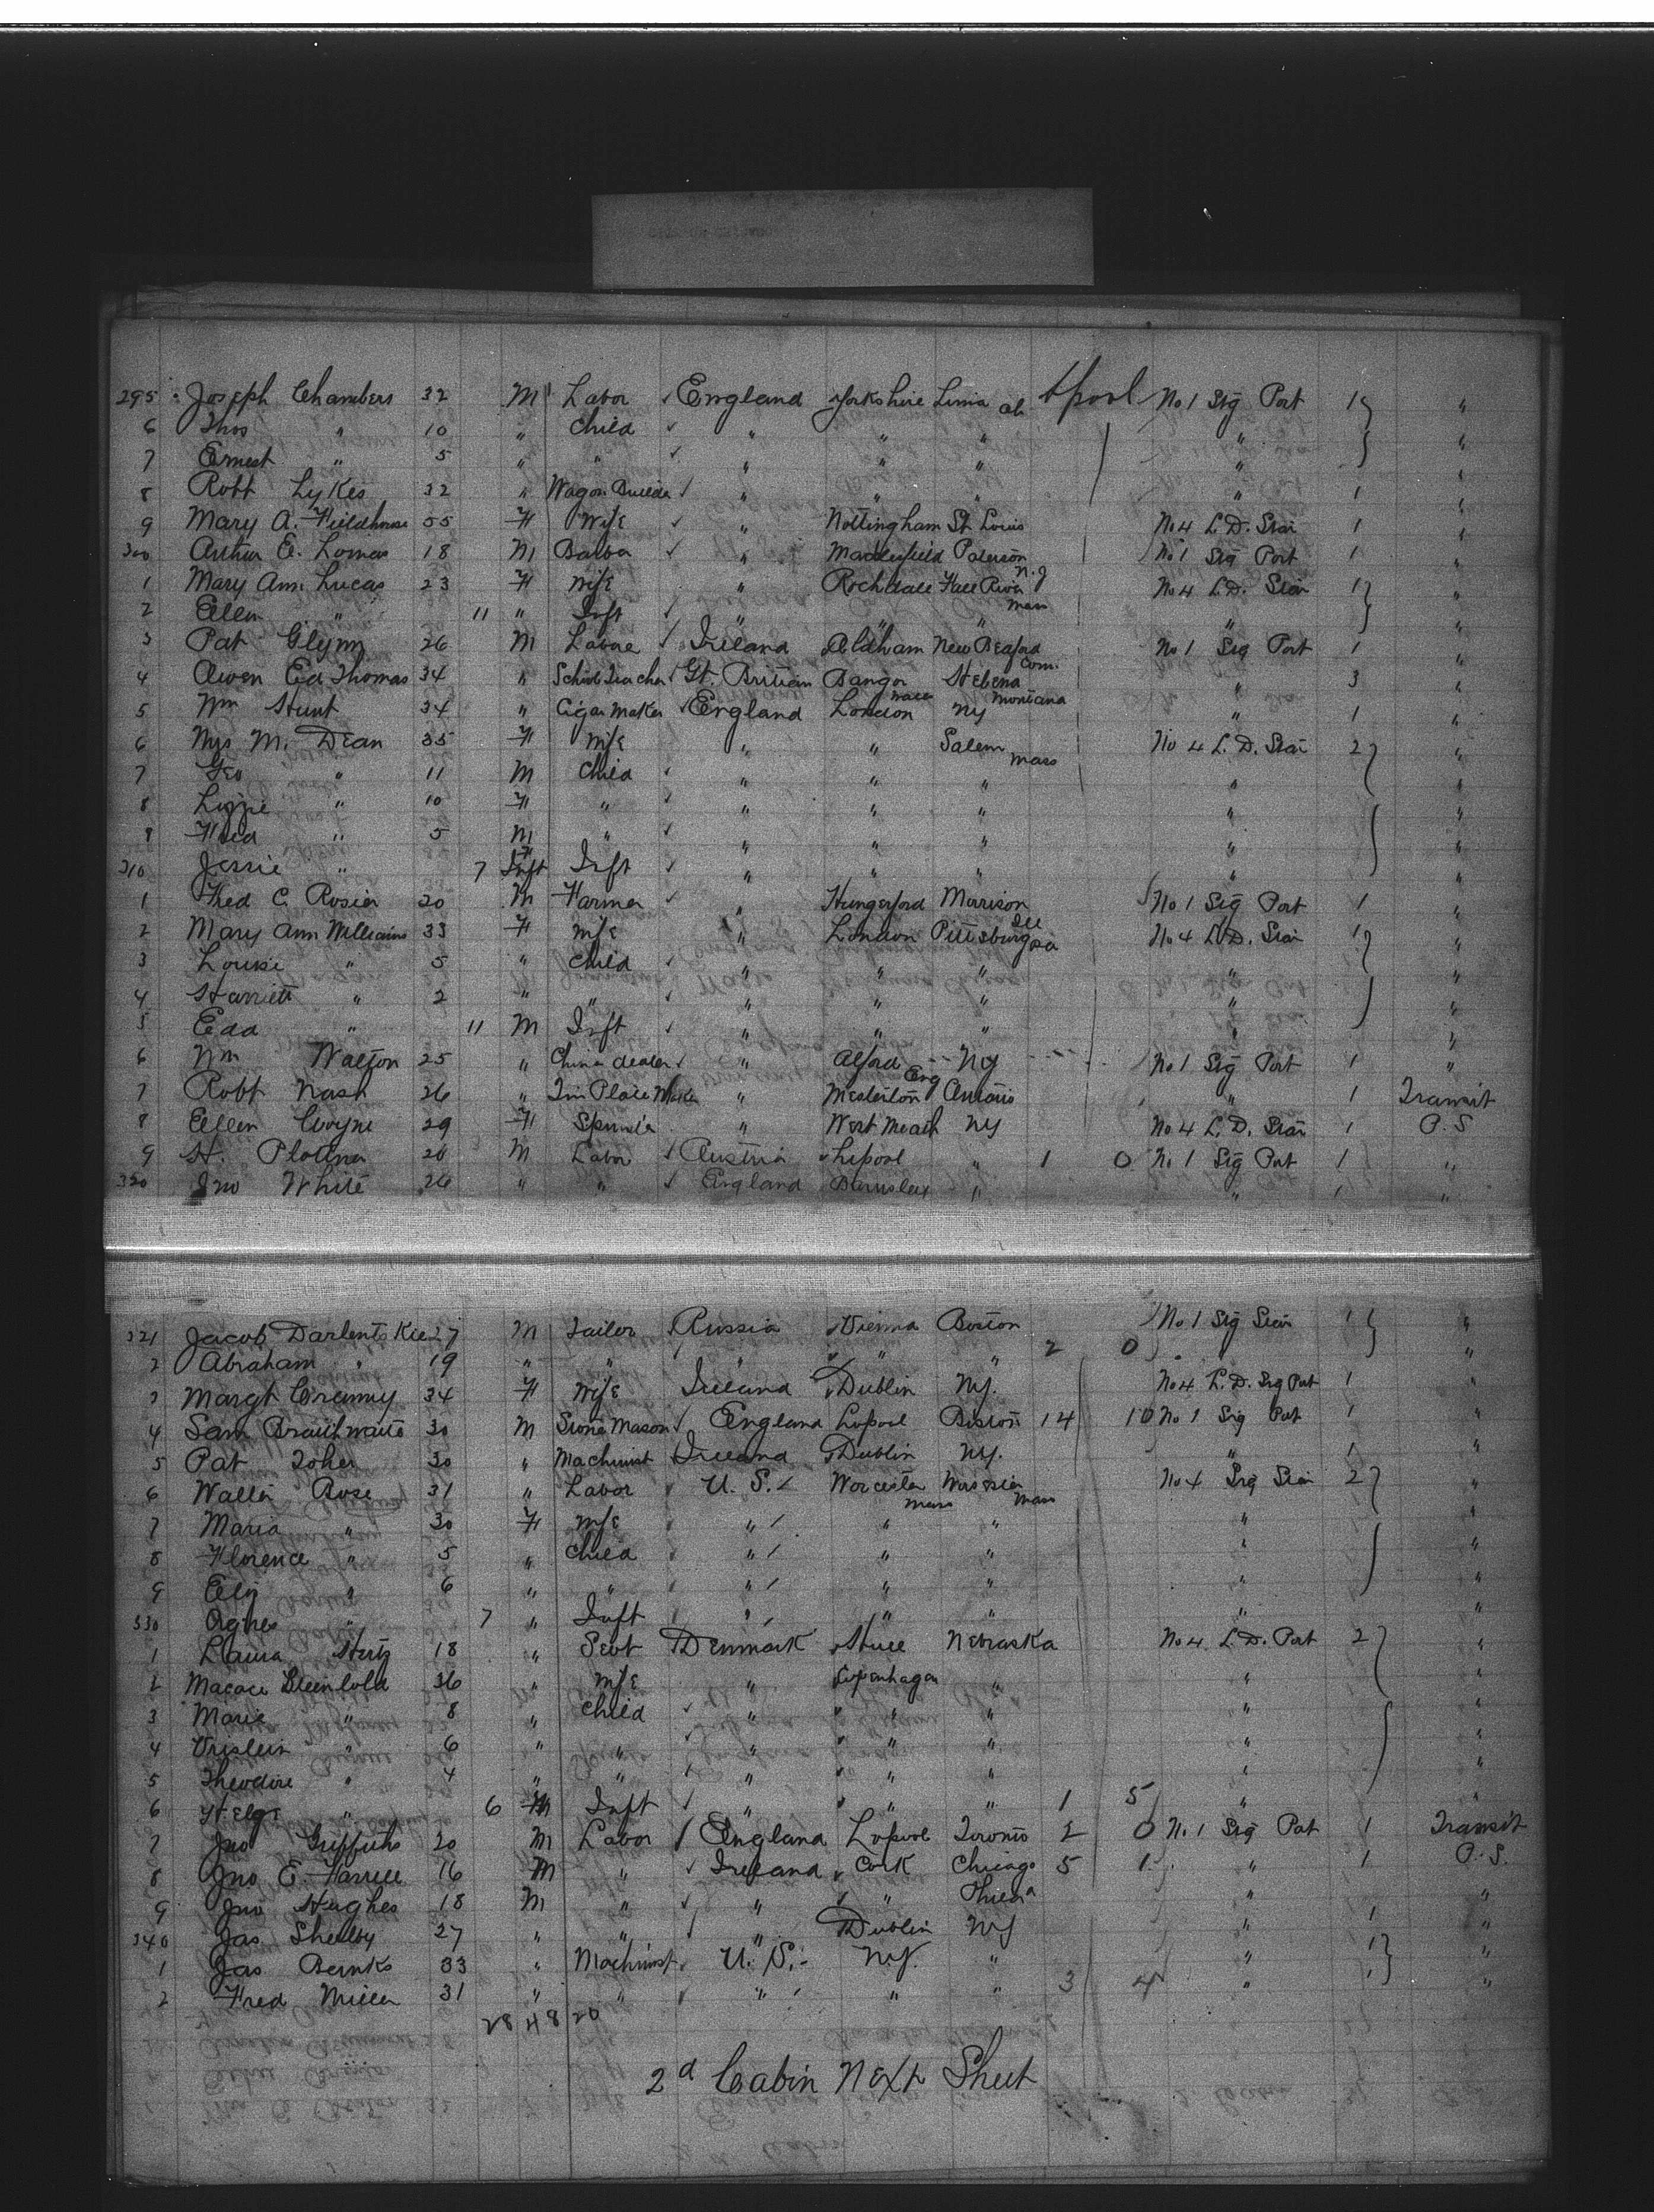 295 Joseph Chambers 32 M Labor England Yorkshire Lima Oh Lpool No 1 Stg Port 1 "
6 Thos " 10 " Child " " " " "
7 Ernest " 5 " " " " " " "
8 Robt Lykes 32 " Wagon Builder " " " " 1 "
9 Mary A. Fieldhouse 55 F Wife " Nottingham St Louis No 4 L.D. Star 1 "
300 Arthur E. Lomas 18 M Barber " Macclesfield Paterson N.J No 1 Stg Port 1 "
1 Mary Ann Lucas 23 F Wife " Rochdale Fall River Mass No 4 L.D. Star 1 "
2 Ellen " 11 " Inft " " " " "
3 Pat Glynn 26 M Labor Ireland Oldham New Bedford No 1 Stg Port 1 "
4 Owen Ed Thomas 34 " School Teacher Gt. Britian Bangor Wales Helena Montana " 3 "
5 Wm Stunt 34 " Cigar Maker England London NY " 1 "
6 Mrs M. Dean 35 F Wife " " Salem Mass No 4 L.D. Star 2 "
7 Geo " 11 M Child " " " " "
8 Lizzie " 10 F " " " " " "
8 Fred " 5 M " " " " " "
310 Jessie " 7 Inft F Inft " " " " "
1 Fred C. Rosier 20 M Farmer " Hungerford Morrison Ill No 1 Stg Port 1 "
2 Mary Ann Williams 33 F Wife " London Pittsburg Pa No 4 L.D. Star 1 "
3 Louise " 5 " Child " " " " "
4 Harriett " 2 " " " " " " "
5 Edd " 11 M Inft " " " " "
6 Wm Walton 25 " China dealer " Alford Eng NY No 1 Stg Port 1 "
7 Robt Nash 26 " Tin Plate Worker " Ontario " 1 Transit
8 Ellen Coyne 29 F Spinster " West Meath NY No 4 L.D. Star 1 P.S
9 H. 26 M Labor Austria Lipool " 1 0 No 1 Stg Port 1 "
320 Jno White 26 " " England Barnsley " " 1 "
321 Jacob Darlentskie 27 M Tailor Russia Vienna Boston No 1 Stg Star 1 "
2 Abraham " 19 " " " " " 2 0 " "
3 Margt 34 F Wife Ireland Dublin NY. No 4 L.D. Stg Port 1 "
4 Sam Braithwaite 30 M Stone Mason England Lpool Boston 14 10 No 1 Stg Port 1 "
5 Pat Toher 30 " Machinist Ireland Dublin NY. " 1 "
6 Walter Rose 31 " Labor U.S. Worcester Mass Worcester Mass No 4 Stg Star 2 "
7 Maria " 30 F Wife " " " " "
8 Florence " 5 " Child " " " " "
9 Eliz " 6 " " " " " " "
330 Agnes " 7 " Inft " " " " "
1 Laura Hertz 18 " Sevt Denmark Nebraska No 4 L.D. Port 2 "
2 36 " Wife " Copenhagen " " "
3 Marie " 8 " Child " " " " "
4 " 6 " " " " " " "
5 Theodore " 4 " " " " " " "
6 Helge " 6 M Inft " " " 1 5 " "
7 Jno Griffiths 20 M Labor England Lpool Toronto 2 0 No. 1 Stg Port 1 Transit
8 Jno E. Farrell 16 M " Ireland Cork Chicago 5 1 " 1 P.S.
9 Jno Hughes 18 M " " " Philada " 1 "
340 Jas Shelby 27 " " " Dublin NY " 1 "
1 Jas Bernks 33 " Machinist U.S. N.Y. " " 1 "
2 Fred Miller 31 " " " " " 3 4 " "
28 48 20
2d Cabin Next Sheet